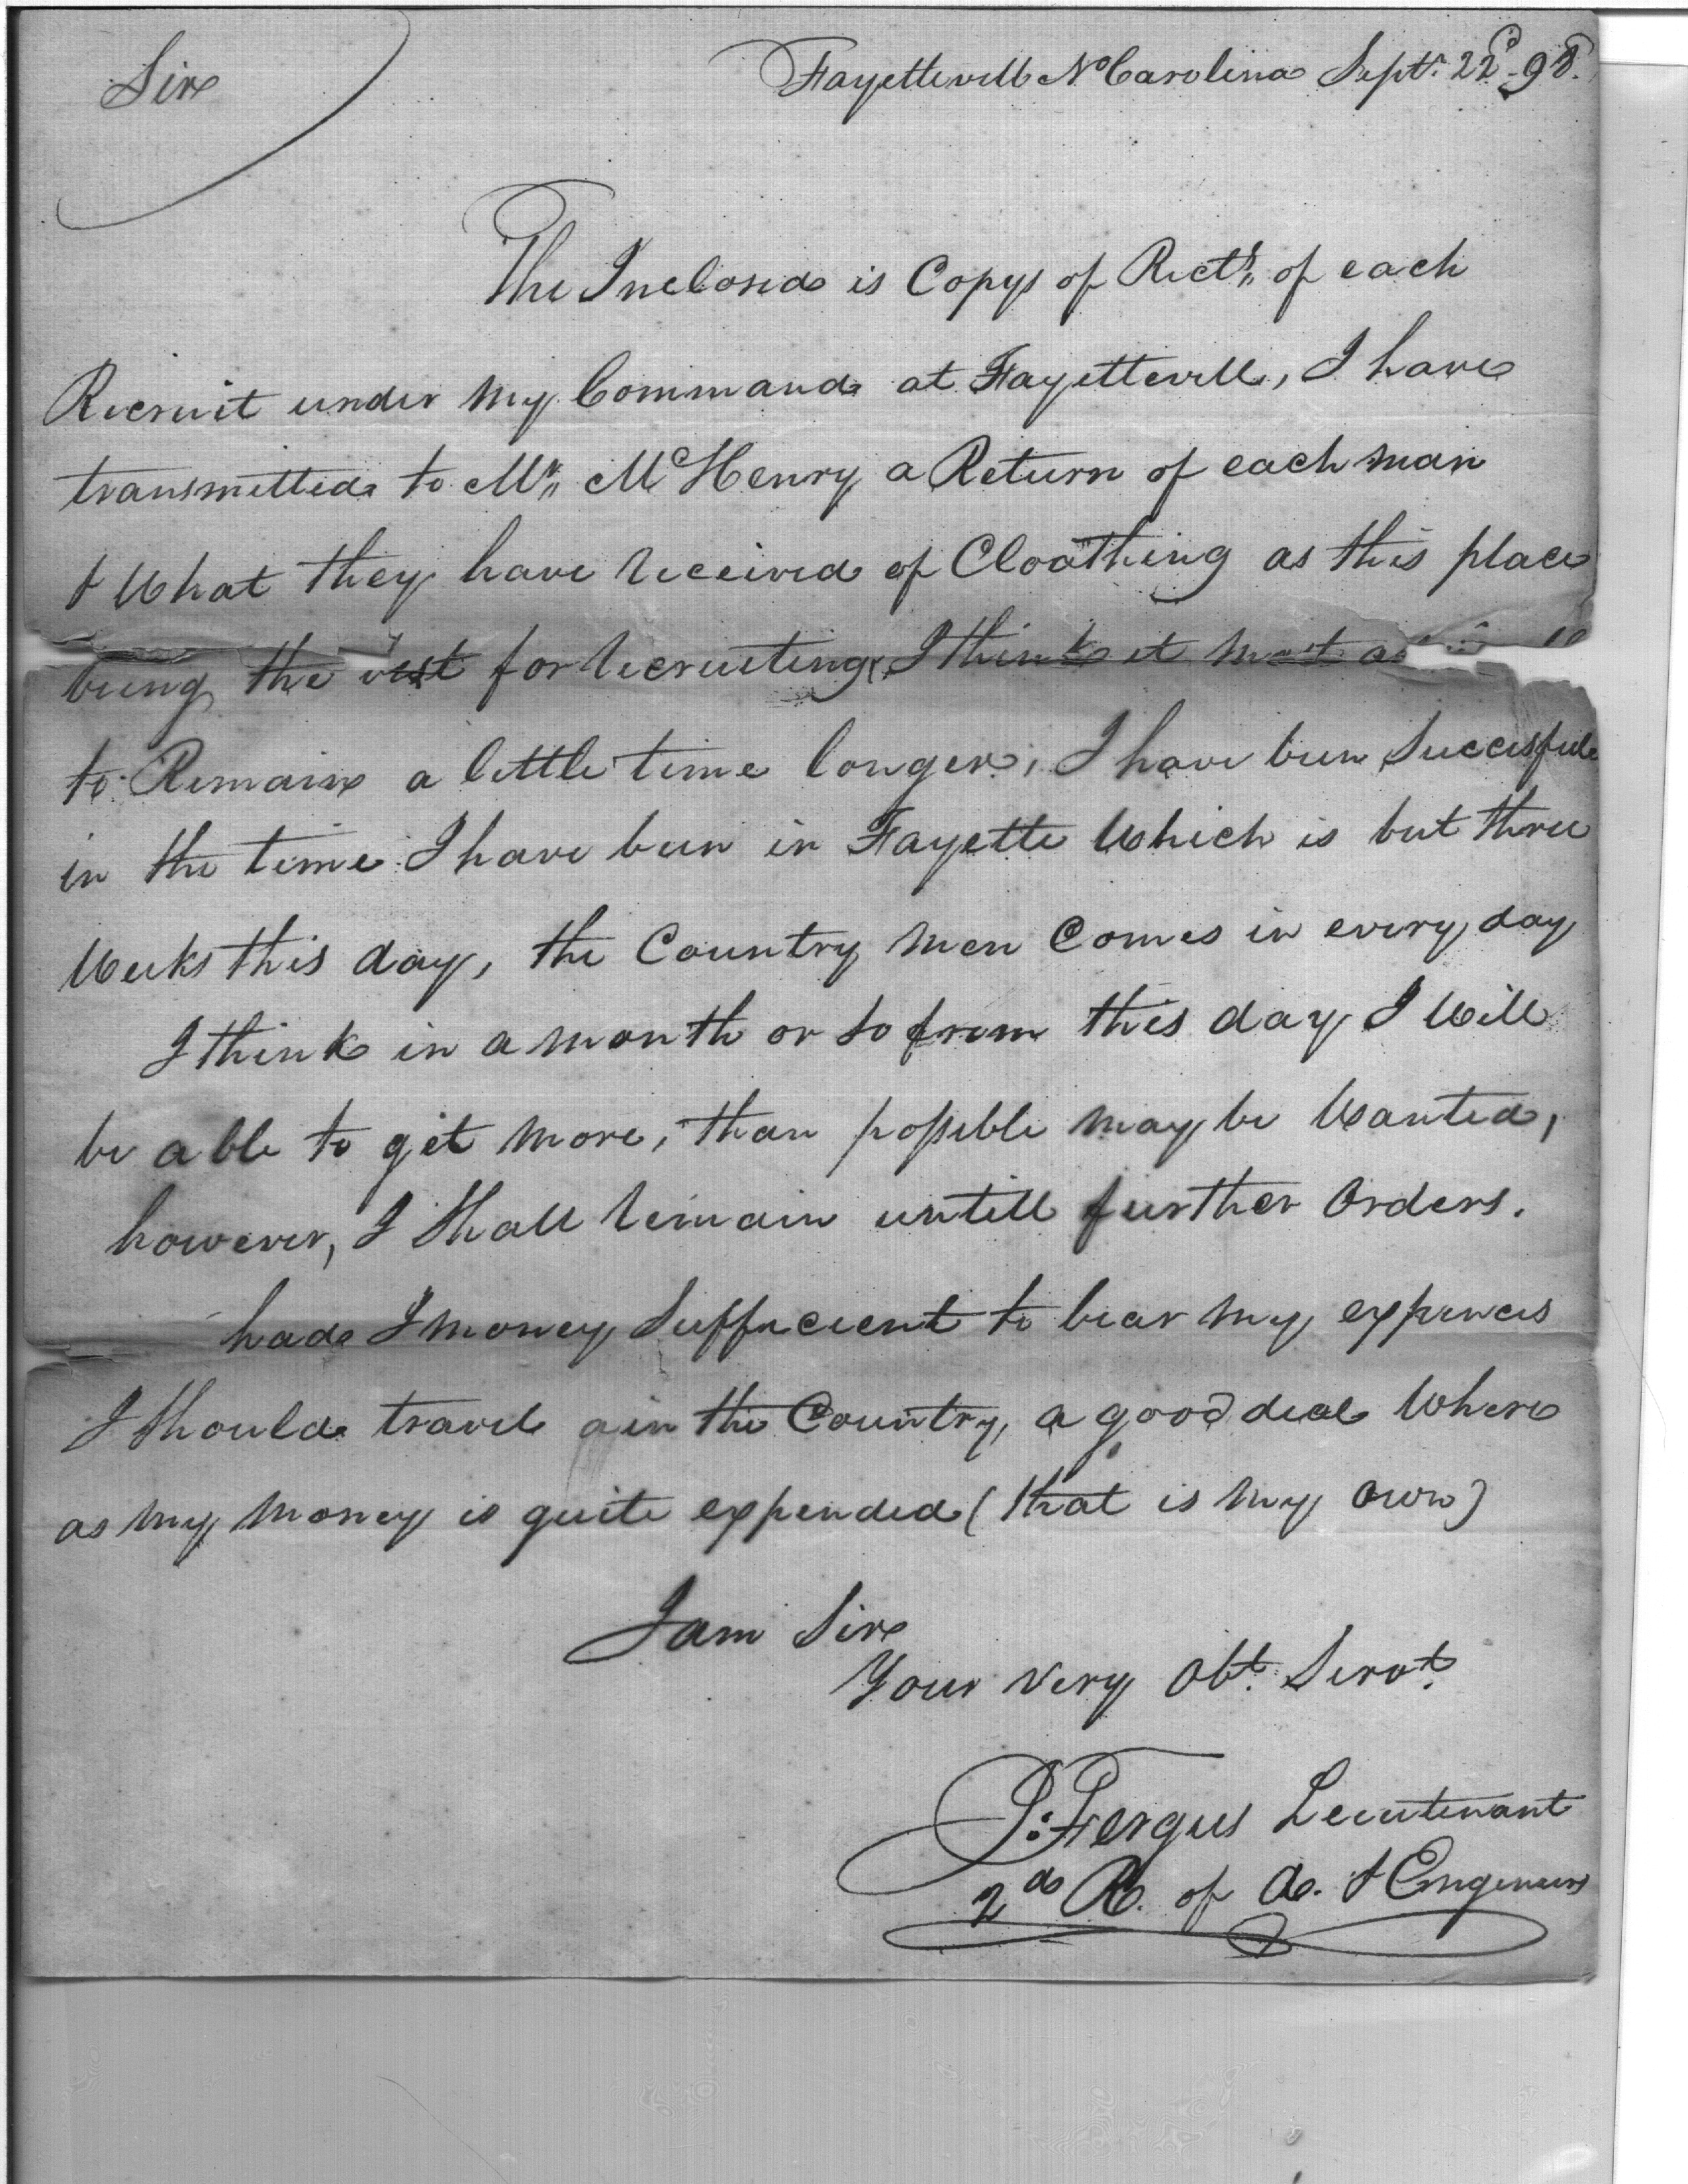 Sir
Fayettevill No Carolina Septr. 22d. 98.
The Inclosed is Copys of Rects,, of each
Recruit under my Command at Fayettevill, I have
transmitted to Mr,, McHenry a Return of each man
& What they have received of Cloathing as this place
being the for recruiting, I think it most
to Remain a little time longer, I have been Successfull
in the time I have been in Fayette Which is but three
Weeks this day, the Country men Comes in every day
I think in a month or so from this day I Will
be able to get more, than possible may be Wanted,
however, I Shall remain untill further Orders.
had I money Suffucient to bear my expences
I Should travel in the Country, a good deal Where
as my money is quite expended (that is my own)
I am Sir
Your Very Obt. Servt.
J: Fergus Leeutenant
2d R. of A. & Engeneers